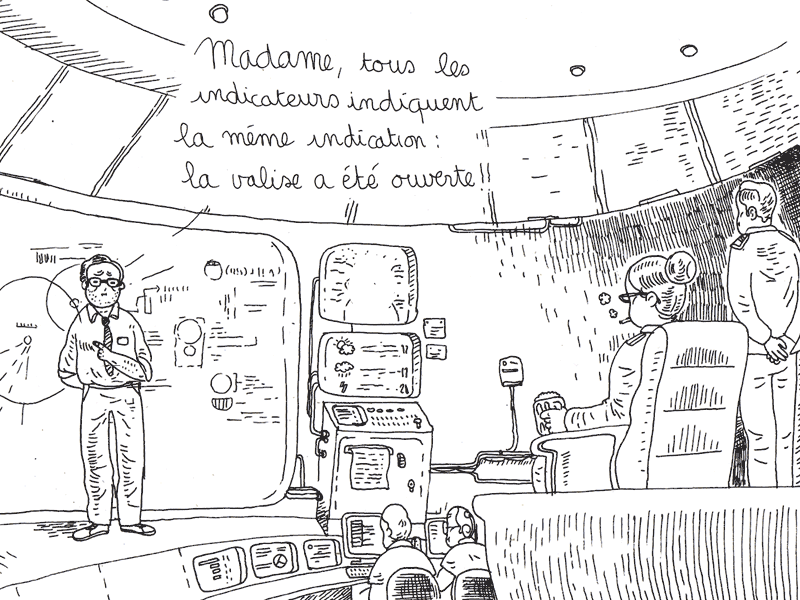 Madame, tous les
indicateurs indiquent
la même indication :
la valise a été ouverte !!